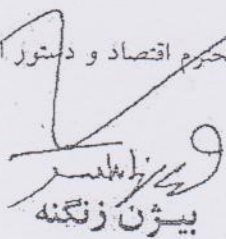 محترم اقتصاد و دستور ا
بیژن زنگنه